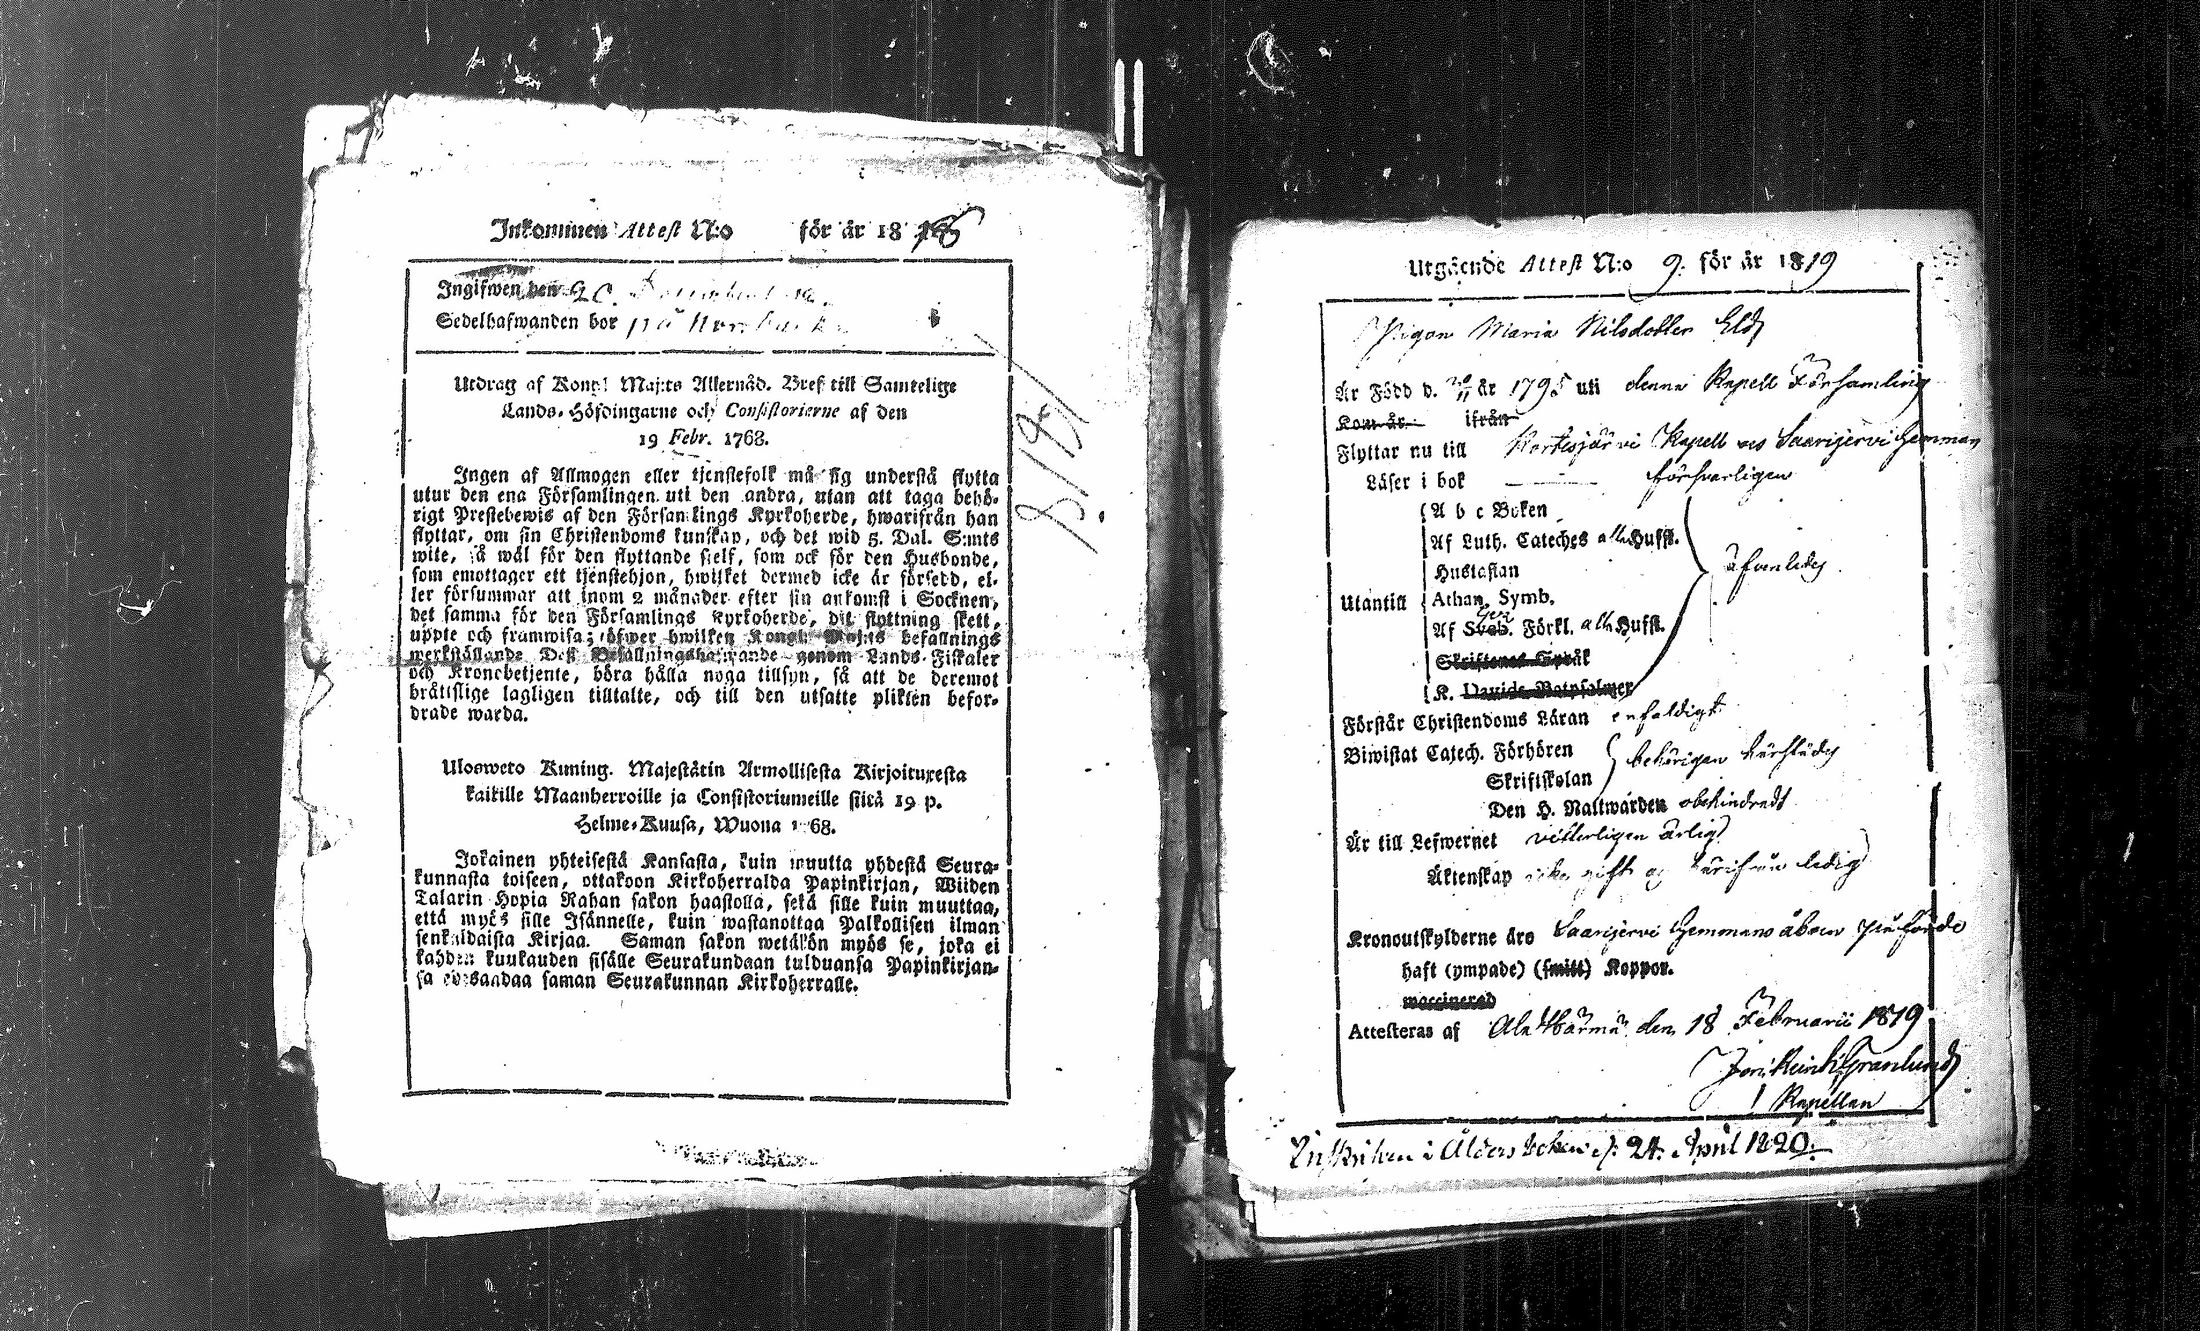 Inkommen Attest N:o för år 18 18
Ingifwen den 20. December 18
Sedelhafwanden bor på
Utdrag af Kongl Maj:ts Allernåd. Bref till Samtelige
Lands-Höfdingarne och Consistorierne af den
19 Febr. 1768.
Ingen af Allmogen eller tjenstefolk må sig understå flytta
utur den ena Församlingen uti den andra, utan att taga behö-
rigt Prestebewis af den Församlings Kyrkoherde, hwarifrån han
flyttar, om sin Christendoms kunskap, och det wid 5. Dal. S:mts
wite, så wäl för den flyttande sielf, som ock för den Husbonde,
som emottager ett tjenstehjon, hwilket dermed icke är försedd, el-
ler försummar att inom 2 månader efter sin ankomst i Socknen,
det samma för den Församlings Kyrkoherde, dit flyttning skett,
uppte och framwisa; öfwer hwilken Kongl. Maj:ts befallnings
werkställande Dess Befallningshafwande genom Lands-Fiskaler
och Kronobetjente, böra hålla noga tillsyn, så att de deremot
bråttslige lagligen tilltalte, och till den utsatte plikten befor-
drade warda.
Ulosweto Kuning. Majestätin Armollisesta Kirjoituxesta
kaikille Maanherroille ja Consistoriumeille siitä 19 p.
Helme-Kuusa, Wuona 1768.
Jokainen yhteisestä Kansasta, kuin muutta yhdestä Seura-
kunnasta toiseen, ottakoon Kirkoherralda Papinkirjan, Wiiden
Talarin Hopia Rahan sakon haastolla, sekä sille kuin muuttaa,
että myös sille Isännelle, kuin wastanottaa Palkollisen ilman
senkaldaista Kirjaa. Saman sakon wetäkön myös se, joka ei
kahden kuukauden sisälle Seurakundaan tulduansa Papinkirjan-
sa edesaadaa saman Seurakunnan Kirkoherralle.
Utgående Attest N:o 9. för år 1819
Pigan Maria Nilsdotter
Är Född d. 20/11 år 1795 uti denna Kapell Församling
Kom år ifrån
Flyttar nu till Kortesjärvi Kapell och Saarijervi Hemman
Läser i bok försvarligen
A b c Boken
Af Luth. Cateches alla Hufst.
Hustaflan
Utantill Athan. Symb. äfvenledes
Af Sveb. Förkl. alla Hufst.
Skriftenes Språk
K. Davids Botpsalmer
Förstår Christendoms Läran enfaldigt
Biwistat Catech. Förhören behörigen härstädes
Skriftskolan
Den H. Nattwarden obehindradt
Är till Lefwernet vitterligen ärlig
Äktenskap icke gift och härifrån ledig
Kronoutskylderne äro Saarijervi Hemmans åboen påförde
haft (ympade) (smitt) Koppor.
waccinerad
Attesteras af Ala Härmä den 18 Februarii 1819
Granlund
Kapellan
Inskrifven i Ålders boken d. 24. April 1820.